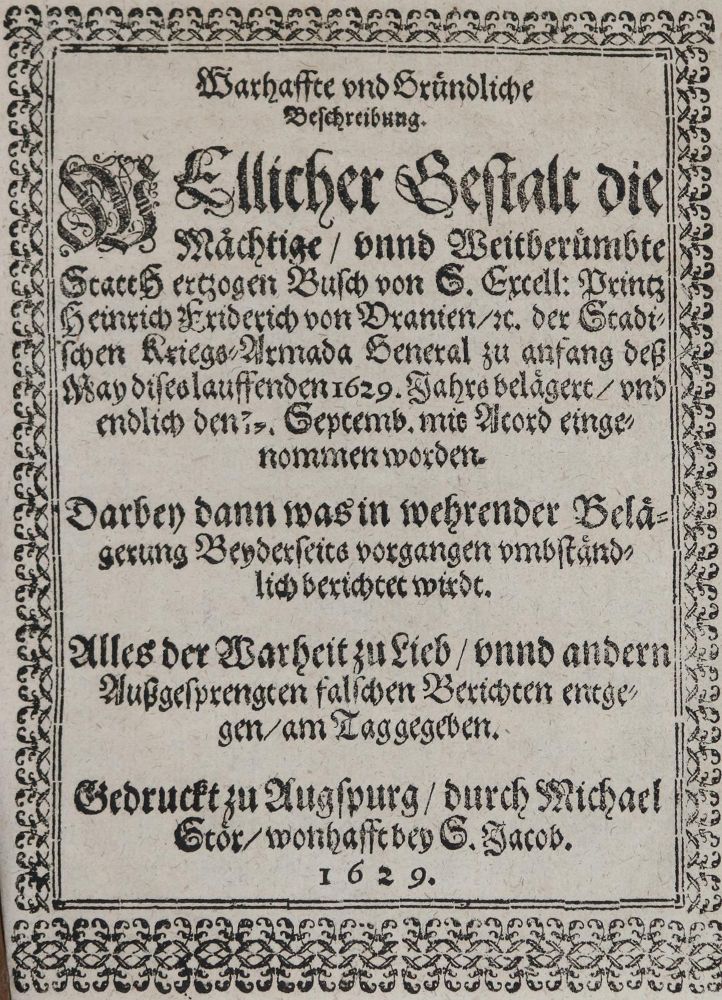 Warhaffte vnd Gründliche
Beschreibung.
WEllicher Gestalt die
Mächtige / vnnd Weitberümbte
Statt Hertzogen Busch von S. Excell: Printz
Heinrich Friderich von Vranien / ꝛc. der Stadi-
schen Kriegs-Armada General zu anfang deß
May dises lauffenden 1629. Jahrs belägert / vnd
endlich den . Septemb. mit Acord einge-
nommen worden.
Darbey dann was in wehrender Belä-
gerung Beyderseits vorgangen vmbständ-
lich berichtet wirdt.
Alles der Warheit zu Lieb / vnnd andern
Außgesprengten falschen Berichten entge-
gen / am Tag gegeben.
Gedruckt zu Augspurg / durch Michael
Stör / wonhafft bey S. Jacob.
1629.